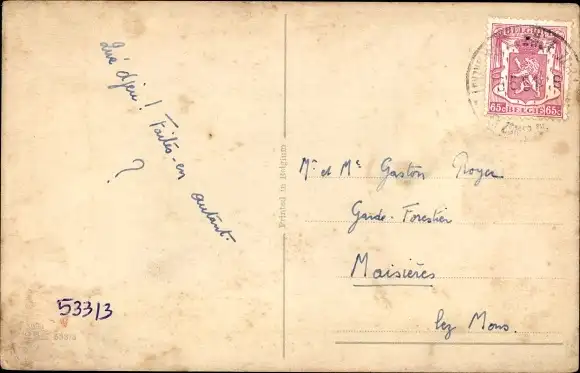 Qué djeu! Faites-en autant.
?
533/3
Printed in Belgium
BELGIQUE
65c BELGIE 65c
Mr et Me Gaston Royer
Garde-Forestier
Maisières
lez Mons.